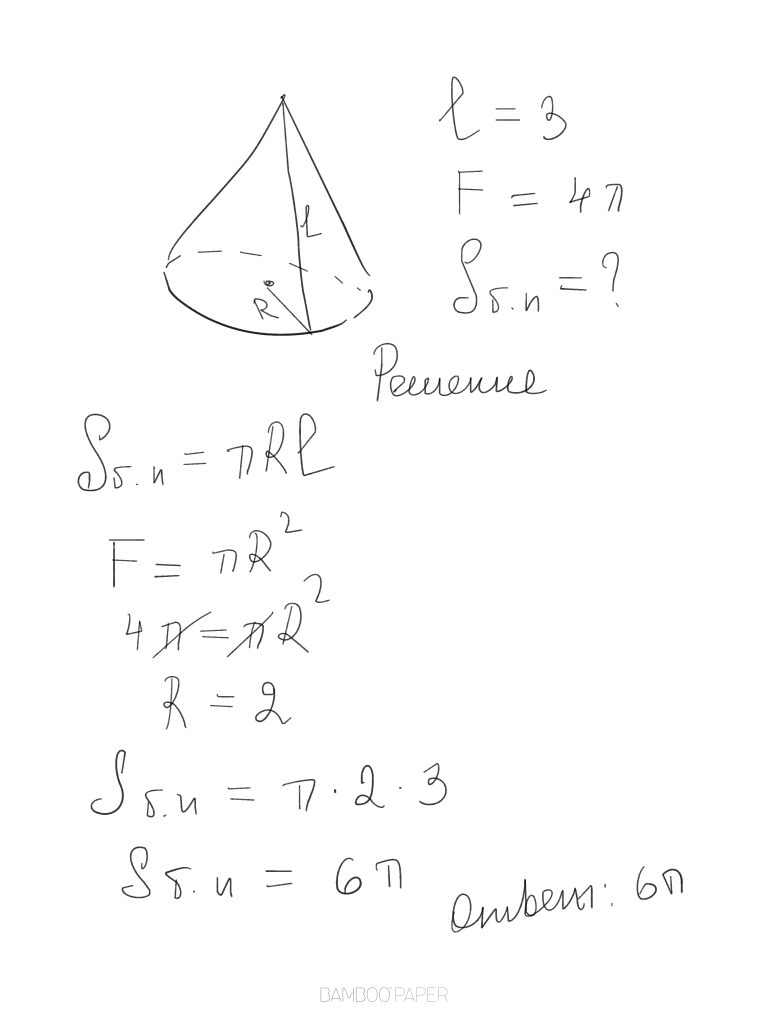 l = 3
F = 4π
Sб.п = ?
l
R
Решение
Sб.п = πRl
F = πR²
4π = πR²
R = 2
Sб.п = π · 2 · 3
Sб.п = 6π
Ответ: 6π
BAMBOO PAPER